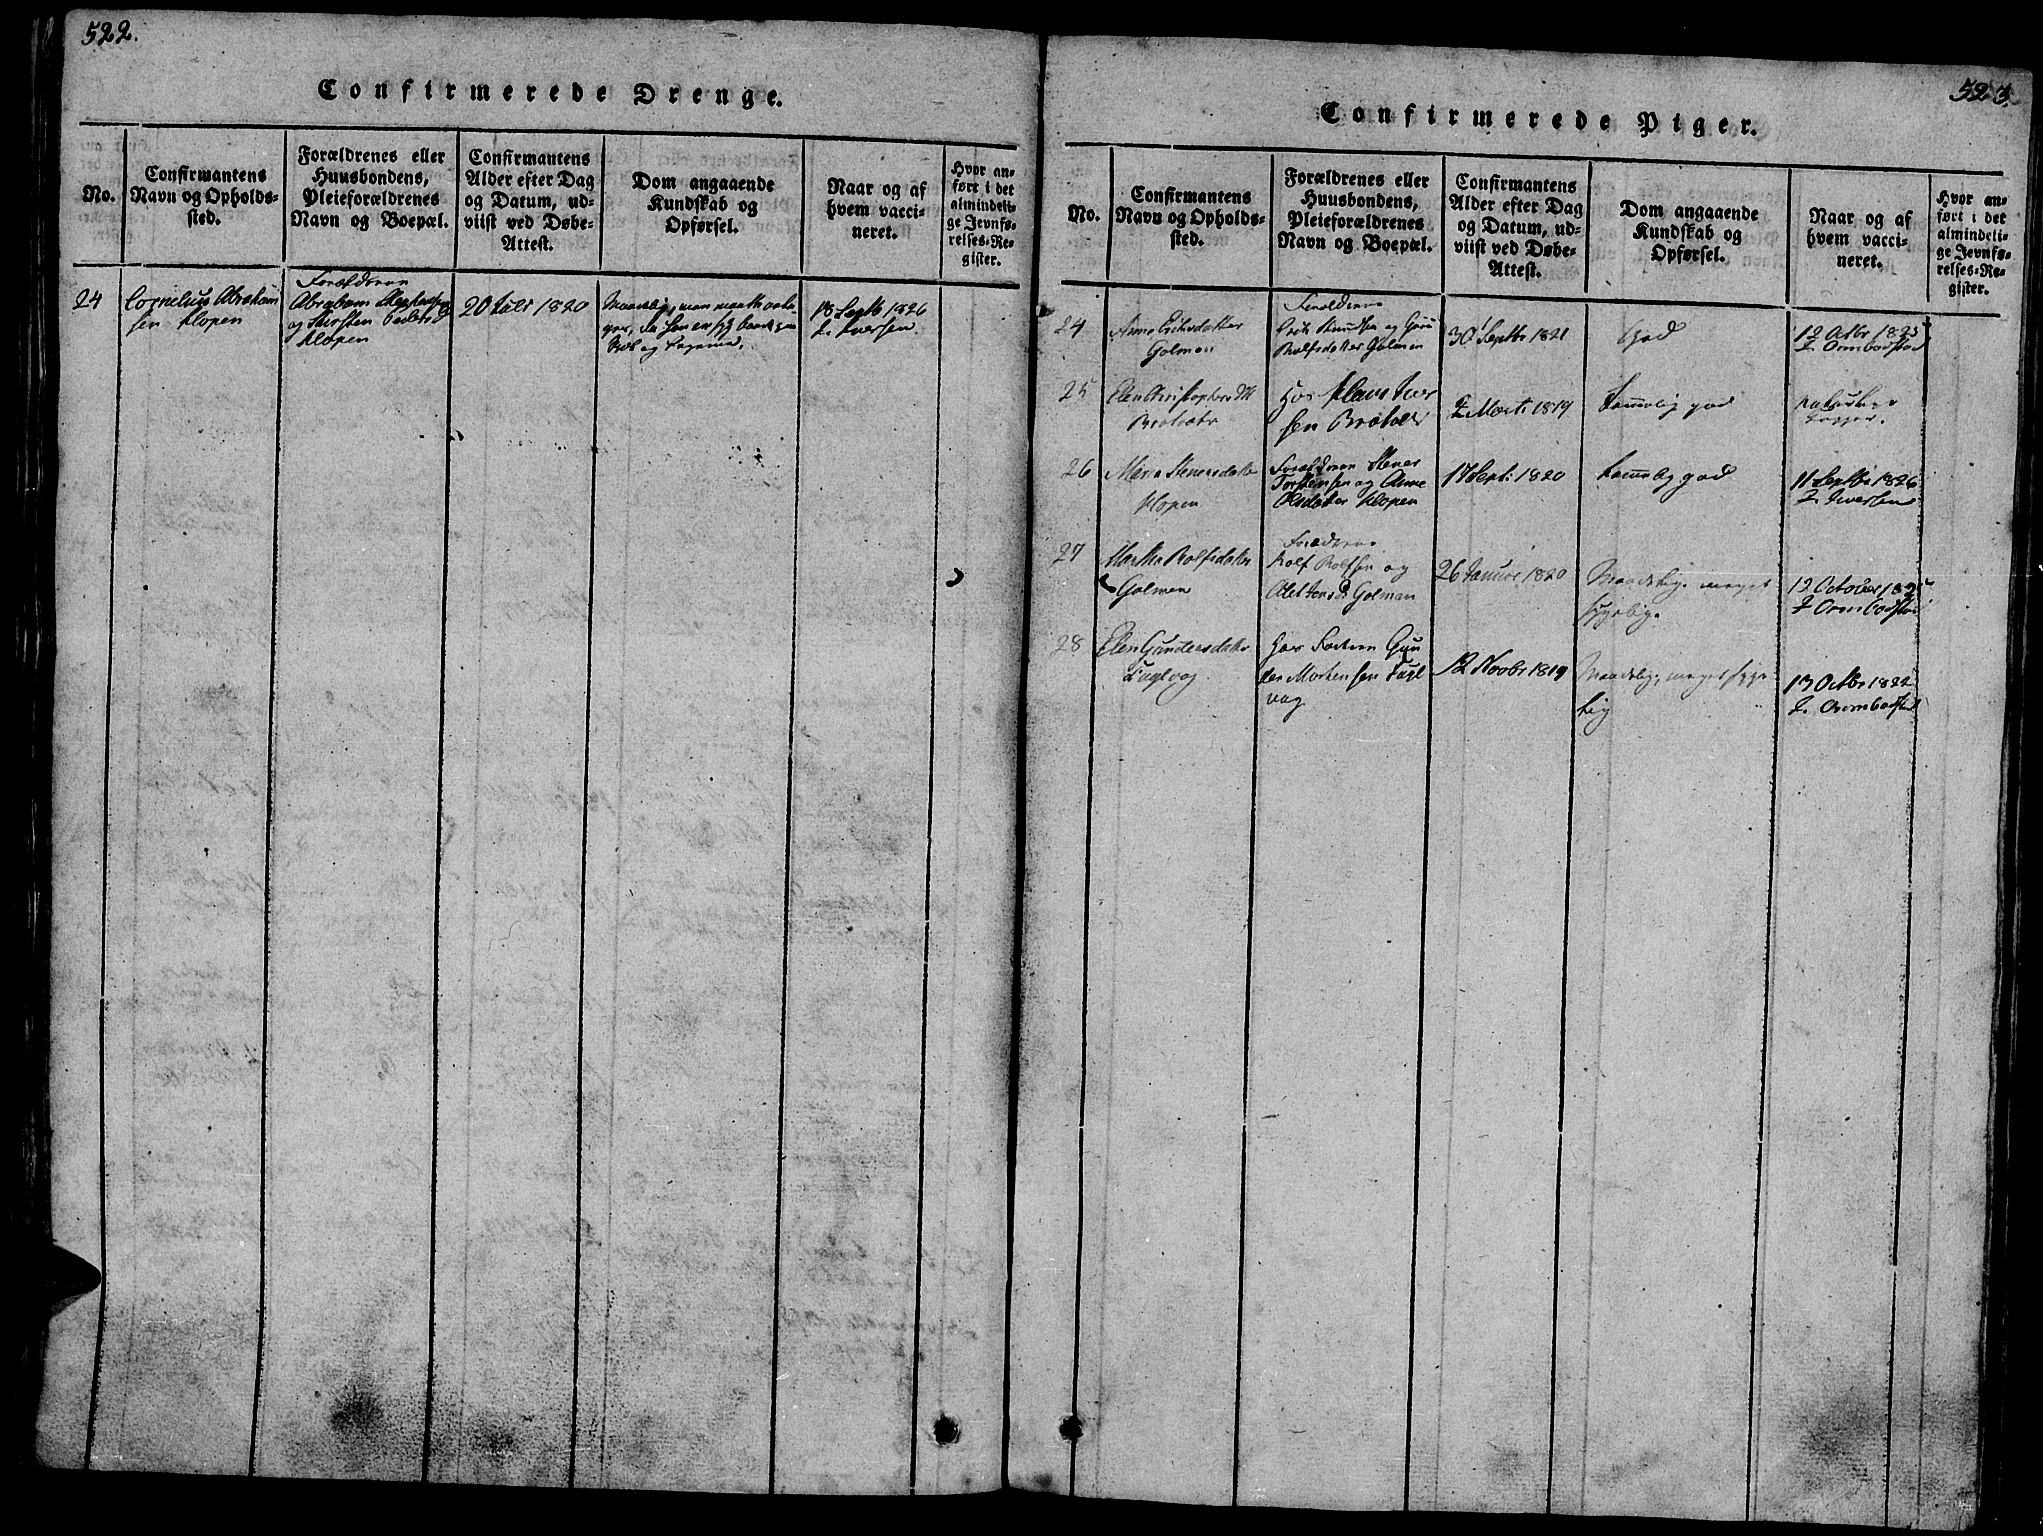 522.
Confirmerede Drenge.
No.
Confirmantens
Navn og Opholds-
sted.
Forældrenes eller
Huusbondens,
Pleieforældrenes
Navn og Boepæl.
Confirmantens
Alder efter Dag
og Datum, ud-
viist ved Døbe-
Attest.
Dom angaaende
Kundskab og
Opførsel.
Naar og af
hvem vacci-
neret.
Hvor an-
ført i det
almindeli-
ge Jevnfø-
relses-Re-
gister.
24
Cornelius Abraham
sen Klopen
Forældrene
Abraham
og Kirsten
Klopen
20 Juli 1820
Maadelig,
og
18 Septb 1826
Z. Iversen
523.
Confirmerede Piger.
No.
Confirmantens
Navn og Opholds-
sted.
Forældrenes eller
Huusbondens,
Pleieforældrenes
Navn og Boepæl.
Confirmantens
Alder efter Dag
og Datum, ud-
viist ved Døbe-
Attest.
Dom angaaende
Kundskab og
Opførsel.
Naar og af
hvem vacci-
neret.
Hvor an-
ført i det
almindeli-
ge Jevnfø-
relses-Re-
gister.
24
Anne Eriksdatter
Golmen
Forældrene
Erik Knudsen og Guru
Rolfsdatter Golmen
30 Septbr 1821
God
12 Octbr 1825
Z. Ormbostad
25
Elen Christophers
Hos Klaus Iver
sen
2 Marti 1819
Temelig god
26
Maria Stenersdatter
Klopen
Forældrene Stener
Torstensen og Anne
Olsdatter Klopen
17 Sept: 1820
Temelig god
11 Septbr 1826
Z. Iversen
27
Martha Rolfsdatter
Golmen
Forældrene
Rolf Rolfsen og
Golman
26 Januar 1820
Maadelig, meget
sygelig.
12 October 1825
Z Ormbostad
28
Elen Gundersdatter
Fuglvog
Hos Faderen Gun
der Mortensen Fugl
vog
12 Novbr 1819
Maadelig, meget syge
lig
13 Octbr 1822
Z. Ormbostad